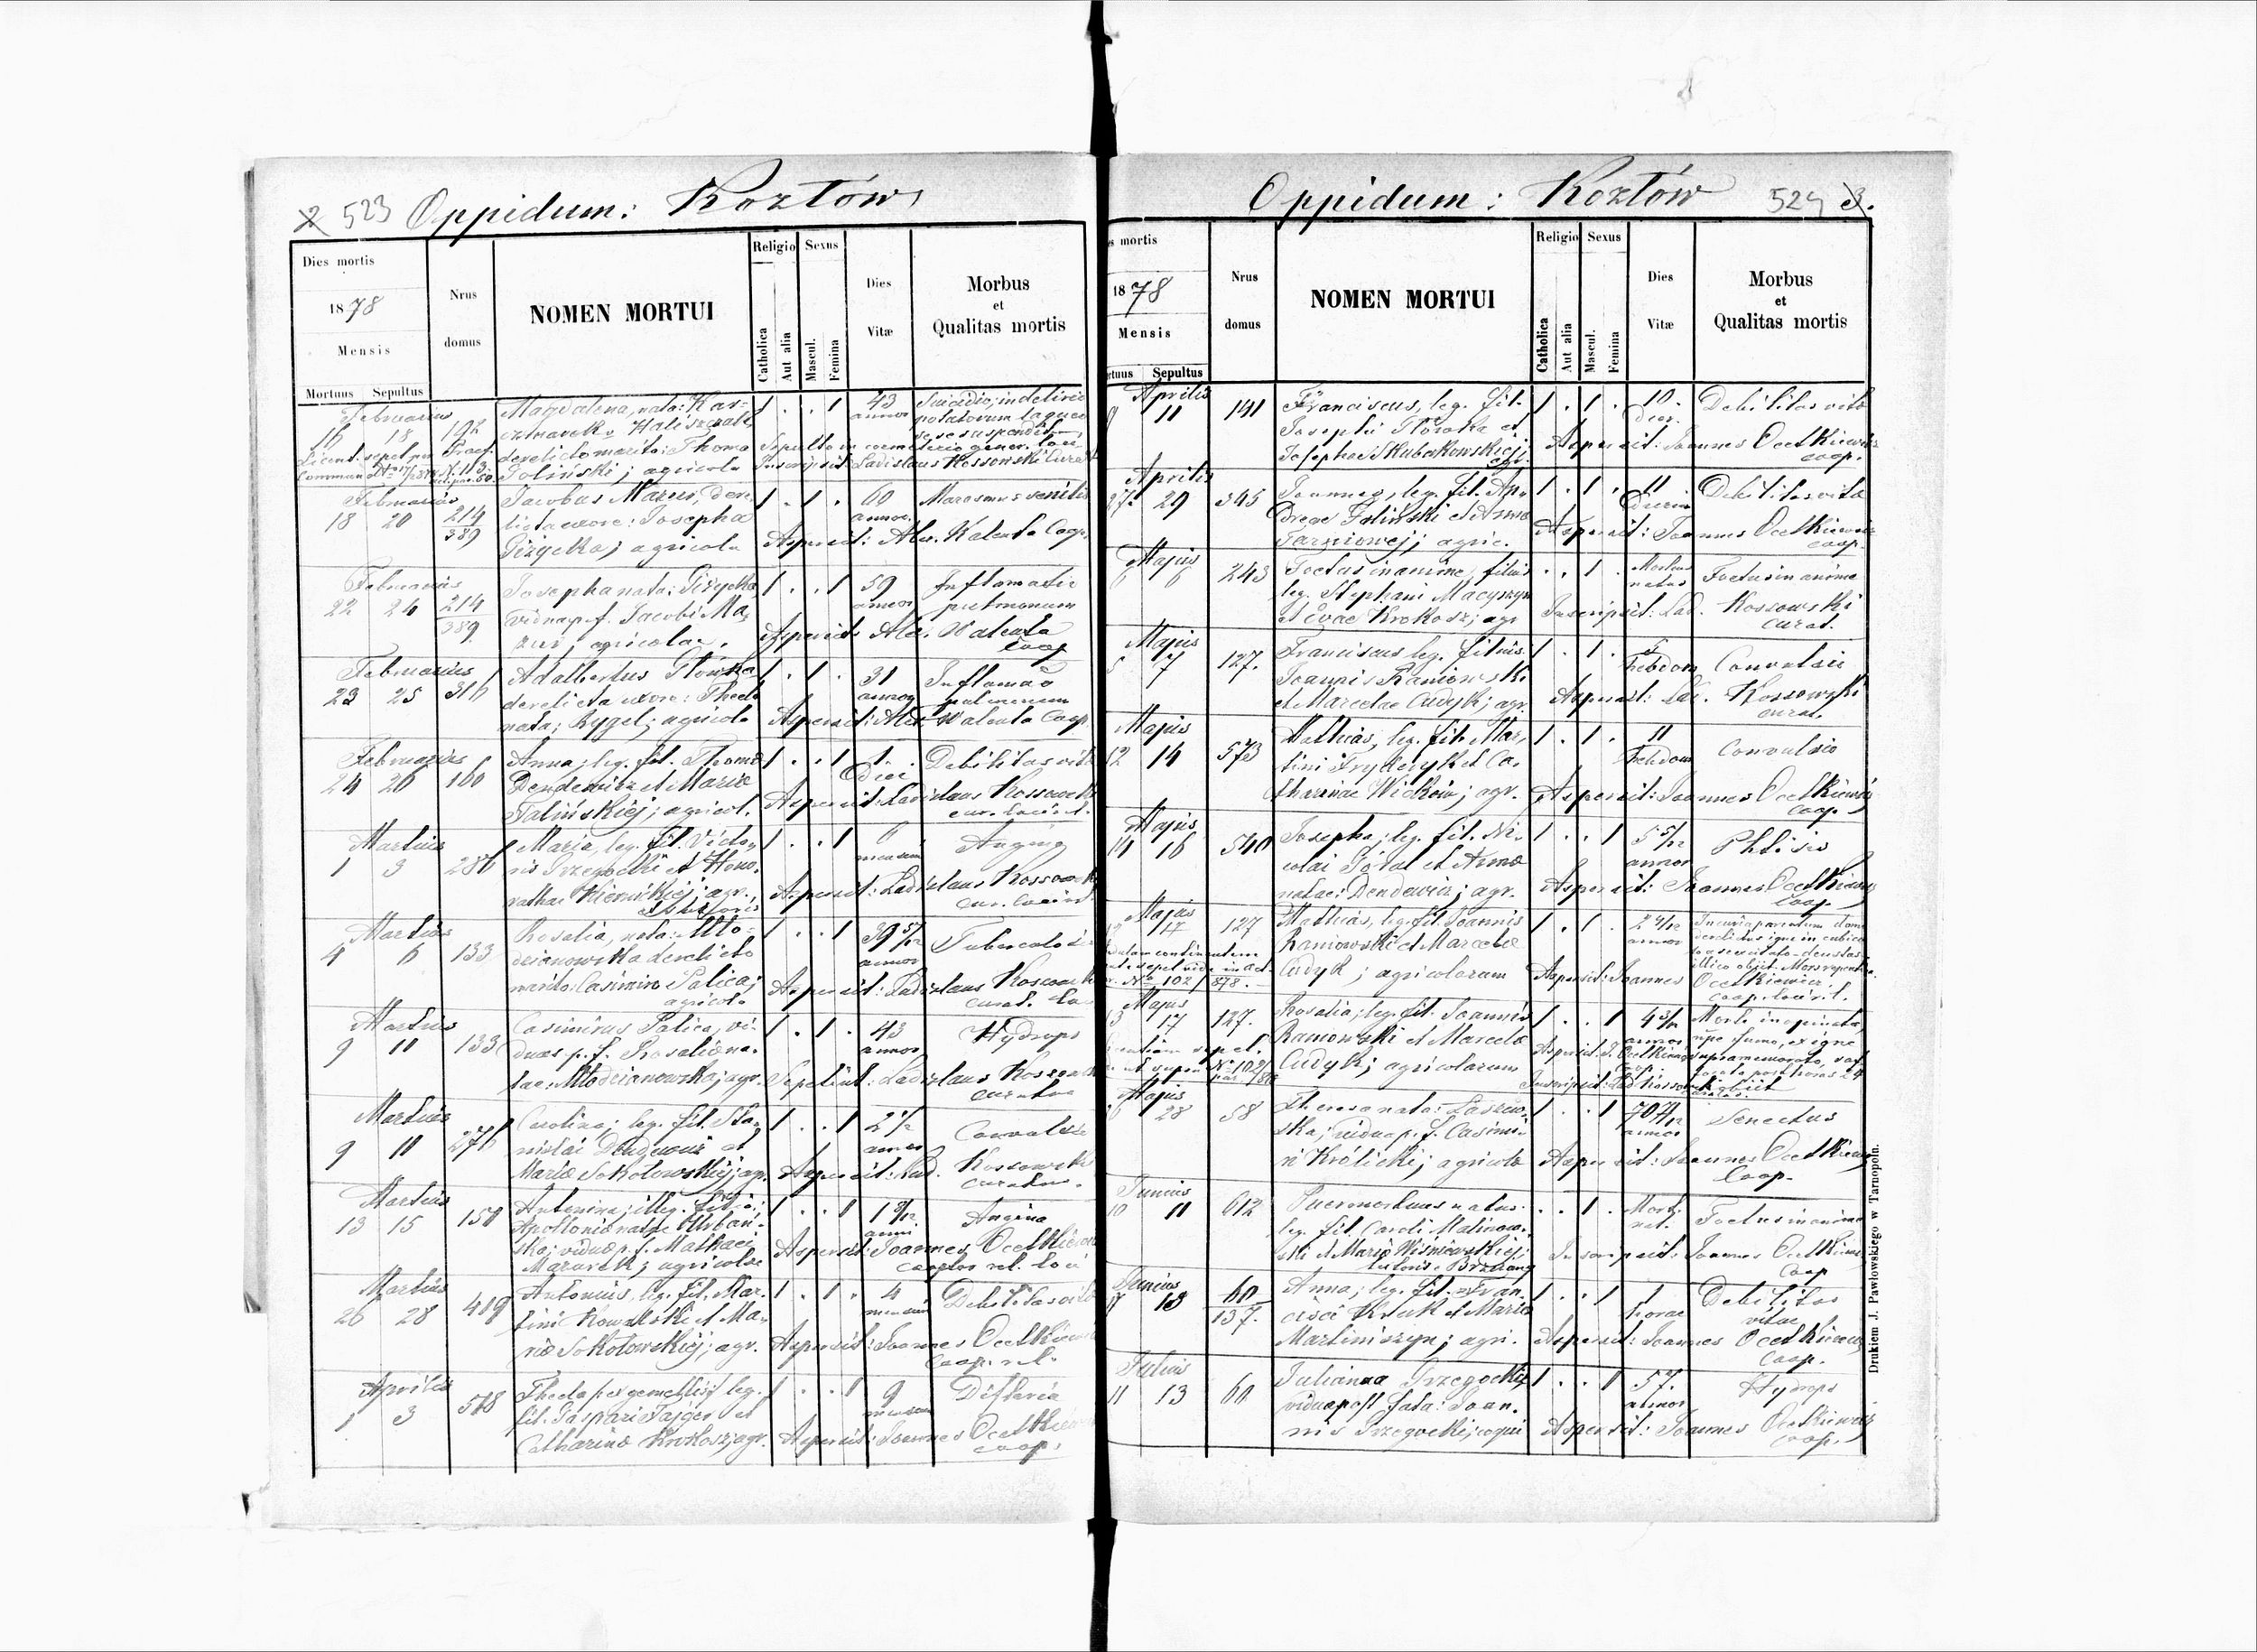 2 523 Oppidum: Kozłów
Dies mortis
1878
Mensis
Mortuus Sepultus
Nrus domus
NOMEN MORTUI
Religio
Catholica
Aut alia
Sexus
Mascul.
Femina
Dies Vitæ
Morbus
et
Qualitas mortis
Februarius
16 18 192
Magdalena, nata: Kar-
derelicto marito: Thoma
Joliński; agricola
1 . . 1
43
annor
Suicidio, in delirio
potatorum laqueo
sese suspendit
Ladislaus Kossowski Curat
Februarius
18 20 214
389
Jacobus Mazur, dere-
licta uxore: Josepha
Giżycka; agricola
1 . 1 .
60
annor.
Marasmus senilis
Aspersit: Alex. Walenta Coop.
Februarius
22 24 214
389
Josepha nata: Giżycka,
vidua p. f. Jacobi Ma-
zur, agricolae.
1 . . 1
59
annor
Inflamatio
pulmonum
Aspersit: Alex. Walenta
Coop
Februarius
23 25 316
Adalbertus Głowka
derelicta uxore: Thecla
nata: Rygel; agricola
1 . 1 .
31
annor
Inflamao
pulmonum
Aspersit: Alex Walenta Coop.
Februarius
24 26 160
Anna, leg. fil. Thomæ
Dendewicz et Mariæ
Falińskiej; agricol.
1 . . 1
1.
Diei
Debilitas vitæ
Aspersit: Ladislaus Kossowski
Martius
1 3 286
Maria, leg. fil. Victo-
ris Grzegocki et Hono-
rathae Kiernickiej; agr.,
1 . . 1
6
mensium
Angina
Aspersit: Ladislaus Kossowski
Martius
4 6 133
Rosalia, nata: Mło-
dzianowska derelicto
marito: Casimiro Palica;
agricola
1 . . 1
39 5/12
annor
Tuberculosis
Aspersit: Ladislaus Kossowski
Martius
9 11 133
Casimirus Palica, vi-
duus p. f. Rosaliæ na-
tae: Młodzianowska; agr.
1 . 1 .
43
annor
Hydrops
Sepelivit: Ladislaus Kossowski
curatus
Martius
9 11 276
Carolina; leg. fil. Sta-
nislai Dendewicz et
Mariæ Sokołowskiej; agr.
1 . . 1
2 1/2
annor
Convulsio
Aspersit: Lad. Kossowski
curatus.
Martius
13 15
Antonina; illeg. filia;
Apolloniæ natae Urban-
ska; viduæ p. f. Mathaei
Mazurek; agricolæ
1 . . 1
anni
Angina
Aspersit: Joannes Ocetkiewicz
Martius
26 28 419
Antonius, leg. fil. Mar-
tini Kowalski et Ma-
riæ Sokołowskiej; agr.
1 . 1 .
4
mensium
Debilitas vitæ
Aspersit: Joannes Ocetkiewicz
Coop. r. l.
Aprilis
1 3 578
Thecla ex gemellis; leg.
fil. Gaspari Tajger et
Catharinæ Krokosz; agr.
1 . . 1
9
mensium
Difteria
Aspersit: Joannes Ocetkiewicz
coop.
Oppidum: Kozłów 524 3.
s mortis
1878
Mensis
rtuus Sepultus
Nrus domus
NOMEN MORTUI
Religio
Catholica
Aut alia
Sexus
Mascul.
Femina
Dies Vitæ
Morbus
et
Qualitas mortis
Aprilis
11 141
Franciscus, leg. fil.
Josephi Głowka et
Josephae Skuberkowskiej;
agr.
1 . 1 .
10.
Dier.
Debilitas vitæ
Aspersit: Joannes Ocetkiewicz
coop.
Aprilis
27 29 345
Joannes, leg. fil. An-
dreae Joliński et Annæ
agric.
1 . 1 .
11
Dierum
Debilitas vitæ
Aspersit: Joannes Ocetkiewicz
coop.
Majus
6 6 243
Foetus inanime, filius
leg. Stephani Macyszyn
et Evae Krokosz; agr
. . 1 .
Mortuus
natus
Foetus inanime
Inscripsit: Lad. Kossowski
curat.
Majus
5 7 127.
Franciscus leg. filius
Joannis Raniowski
et Marcelae Cudyk; agr.
1 . 1 .
hebdom
Convulsio
Aspersit: Lad. Kossowski
curat.
Majus
12 14 573
Mathias, leg. fil. Mar-
tini Fryderyk et Ca-
tharinae Wickow; agr.
1 . 1 .
11
hebdom
Convulsio
Aspersit: Joannes Ocetkiewicz
coop.
Majus
14 16 540
Josepha; leg. fil. Ni-
colai Góral et Annæ
natae: Dendewicz; agr.
1 . . 1
5 5/12
annor
Phtisis
Aspersit: Joannes Ocetkiewicz
coop.
Majus
17 127
Mathias, leg. fil. Joannis
Raniowski et Marcelæ
Cudyk; agricolarum
1 . 1 .
annor
Aspersit: Joannes Ocetkiewicz
coop. loci r. l.
Majus
17 127.
Rosalia; leg. fil. Joannis
Raniowski et Marcelæ
Cudyk; agricolarum
1 . . 1
annor
Morte inopinata
Majus
28 58
Theresa nata: Laszew-
ska; vidua p. f. Casimi-
ri Królicki; agricola
1 . . 1
annor
Senectus
Aspersit: Joannes Ocetkiewicz
Coop.
Junius
10 11 612
Puer mortuus natus
leg. fil. Caroli Malinow-
ski et Mariæ Wiśniewskiej;
. . 1 .
Mort.
nat.
Foetus inanime
Inscripsit: Joannes Ocetkiewicz
Coop
Junius
17 18 60
137.
Anna; leg. fil. Fran-
cisci Kruk et Mariæ
Martiniszyn; agri.
1 . . 1
1
horae
Debilitas
vitae
Aspersit: Joannes Ocetkiewicz
Coop.
Julius
11 13 60
Julianna Grzegocki,
vidua post fata: Joan-
nis Grzegocki;
1 . . 1
57.
annor
Hydrops
Aspersit: Joannes Ocetkiewicz
coop.
Drukiem J. Pawłowskiego w Tarnopolu.